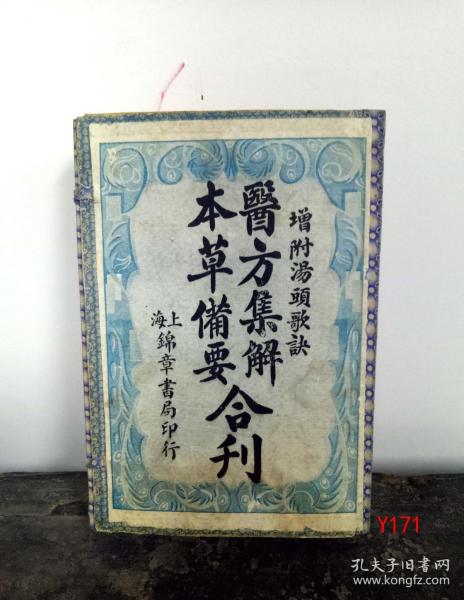 增附湯頭歌訣
醫方集解
本草備要
合刊
上海錦章書局印行
Y171
孔夫子旧书网
www.kongfz.com